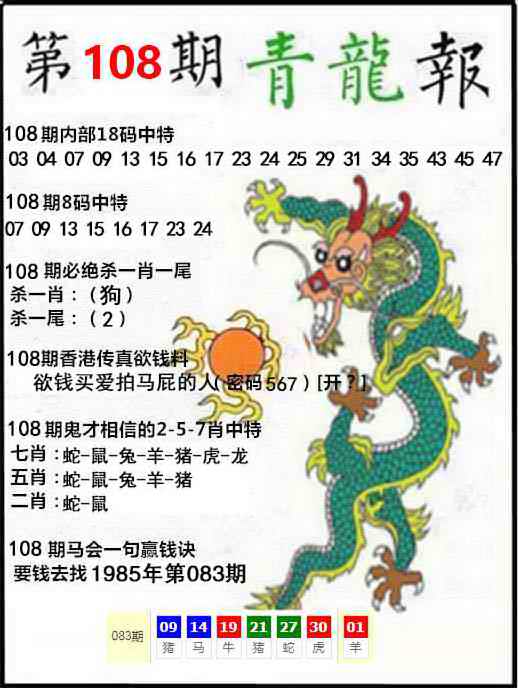 第108期青龍報
108期内部18码中特
03 04 07 09 13 15 16 17 23 24 25 29 31 34 35 43 45 47
108期8码中特
07 09 13 15 16 17 23 24
108期必绝杀一肖一尾
杀一肖：（狗）
杀一尾：（2）
108期香港传真欲钱料
欲钱买爱拍马屁的人（密码567）[开？]
108期鬼才相信的2-5-7肖中特
七肖：蛇-鼠-兔-羊-猪-虎-龙
五肖：蛇-鼠-兔-羊-猪
二肖：蛇-鼠
108期马会一句赢钱诀
要钱去找1985年第083期
083期 09 14 19 21 27 30 01
猪 马 牛 猪 蛇 虎 羊